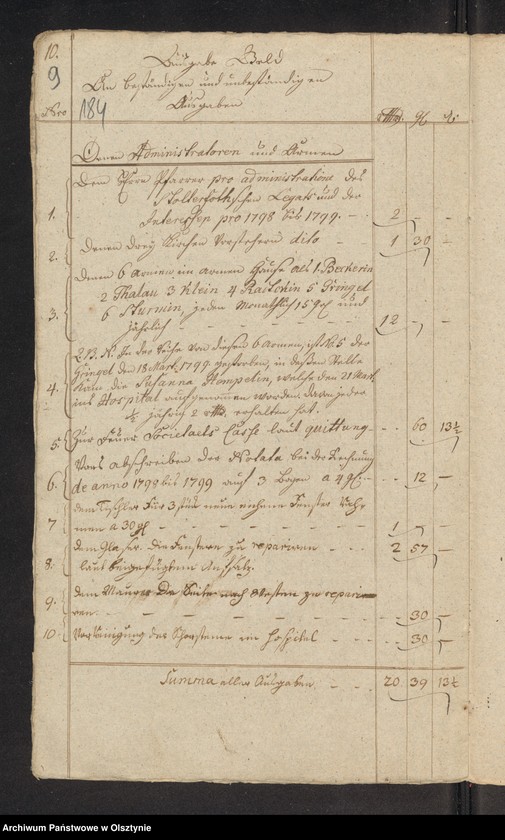 10.
9
184
Ausgabe Geld
An beständigen und unbeständigen
Ausgaben
Nro Rthlr. gl. ₰
Denen Administratoren und Armen
1. Dem Herrn Pfarrer pro administratione des
Stolterfothschen Legats und der
Interessen pro 1798 bis 1799. - - 2 - -
2. Denen drey Kirchen Vorstehern dito - 1 30 -
3. Denen 6 Armen im Armen Hause als 1 Beckerin
2 Thalau 3 Klein 4 Ratschin 5 Gringel
6 Sturmin, jeden Monathlich 15 gl und
jährlich - - - - 12 - -
4. NB. In der Reihe von diesen 6 Armen, ist No 5 der
Gringel den 18 Mart. 1799 gestorben, in deßen Stelle
kam die Susanna Hempelin, welche den 21 Mart.
ins Hospital aufgenommen worden, daran jeder
½ jährig 2 rthl. erhalten hat.
5 Zur Feuer Societaets Casse laut quittung - - - 60 13½
6. Vors abschreiben der Notata bei der Rechnung
de anno 1798 bis 1799 auf 3 Bogen a 4 gl. - - - 12 -
7 dem Tischler für 3 stück neue Fenster Rah-
men a 30 gl - - - - - - 1 - -
8. dem Glaser die Fenstern zu repariren - - - 2 57 -
laut beigefügtem
9. dem Maurer Die Seite nach Westen zu repari-
ren - - - - - - - 30 -
10. Reinigung der Schorsteine im Hospital - - - 30 -
Summa aller Ausgaben - - - 20 39 13½
Archiwum Państwowe w Olsztynie